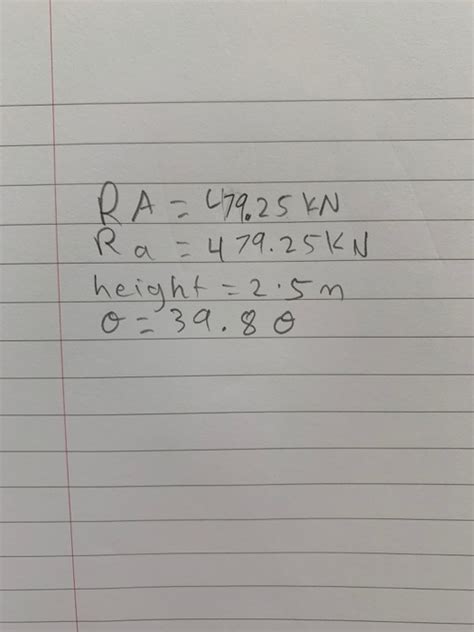 RA = 479.25 KN
Ra = 479.25KN
height = 2.5m
θ = 39.8 θ